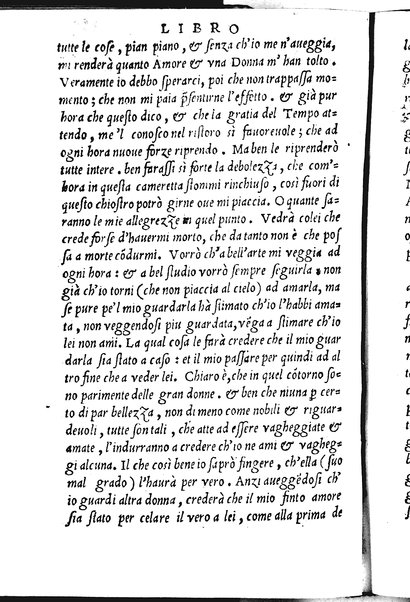 LIBRO
tutte le cose, pian piano, & senza ch'io me n'aueggia,
mi renderà quanto Amore & vna Donna m'han tolto.
Veramente io debbo sperarci, poi che non trappassa mo-
mento; che non mi paia p̃sentirne l'effetto. & già pur
hora che questo dico, & che la gratia del Tempo at-
tendo, me'l conosco nel ristoro sì fauoreuole; che ad
ogni hora nuoue forze riprendo. Ma ben le riprenderò
tutte intere. ben farassi sì forte la debolezza, che com'-
hora in questa cameretta stommi rinchiuso, così fuori di
questo chiostro potrò girne oue mi piaccia. O quante sa-
ranno le mie allegrezze in quel punto. Vedrà colei che
crede forse d'hauermi morto, che da tanto non è che pos
sa a morte cõdurmi. Vorrò ch'a bell'arte mi veggia ad
ogni hora: & a bel studio vorrò sempre seguirla, non
già ch'io torni (che non piaccia al cielo) ad amarla, ma
se pure pe'l mio guardarla hà stimato ch'io l'habbi ama-
ta, non veggendosi piu guardata, vẽga a stimare ch'io
lei non ami. La qual cosa le farà credere che il mio guar
darla sia stato a caso: et il mio passare per quindi ad al
tro fine che a veder lei. Chiaro è, che in quel cõtorno so-
no parimente delle gran donne. & ben che niuna p̃ cer-
to di par bellezza, non di meno come nobili & riguar-
deuoli, tutte son tali, che atte ad essere vagheggiate &
amate, l'indurranno a credere ch'io ne ami & vagheg-
gi alcuna. Il che così bene io saprò fingere, ch'ella (suo
mal grado) l'haurà per vero. Anzi aueggẽdosi ch'
io guardi altra donna, crederà che il mio finto amore
sia stato per celare il vero a lei, come alla prima de